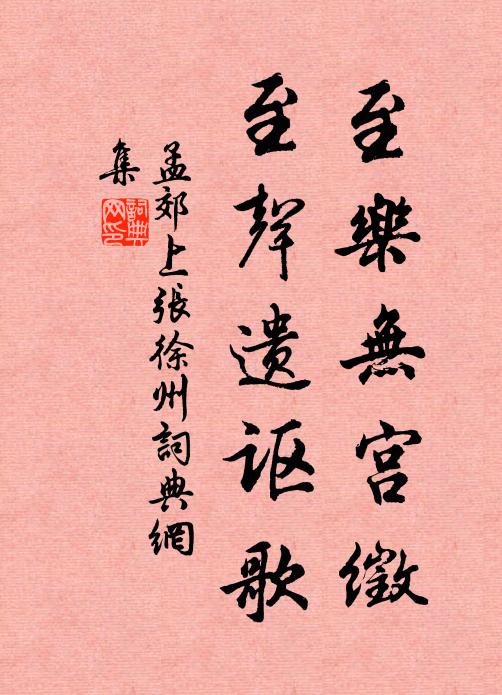 至樂無宮徵
至聲遺讴歌
孟郊上張徐州詞典網
集
詞典
网印